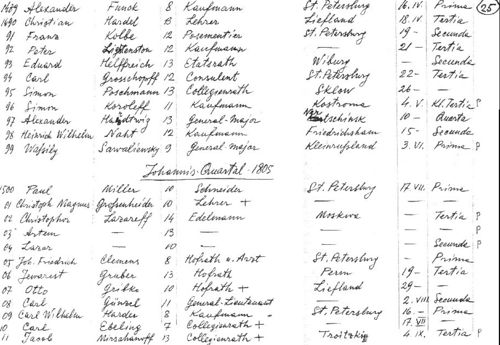 1489 Alexander Funok 8 Kaufmann St. Petersburg 16. IV. Prima (25)
1490 Christian Hardel 13 Lehrer Liefland 18. IV. Tertia
91 Franz Kolbe 12 Posementier St. Petersburg 19 – Secunda
92 Peter Lightenston 12 Kaufmann — 21 – Tertia
93 Eduard Helffreich 13 Etatsrath Wiburg — Secunda
94 Carl Grosschopff 12 Consulent St. Petersburg 22 – Tertia
95 Simon Poschmann 13 Collegienrath Sklow 26 – —
96 Simon Koroleff 11 Kaufmann Kostroma 4. V. Kl. Tertia P
97 Alexander 13 General-Major Nertschinsk 10 – Quarta
98 Heinrich Wilhelm Naht 12 Kaufmann Friedrichsham 15 – Secunda
99 Wassily Sawaliewsky 9 General-Major Kleinrussland 3. VI. Prima P
Johannis-Quartal 1805
1500 Paul Willer 10 Schneider St. Petersburg 17. VII. Prima
01 Christoph Magnus Grosenheider 10 Lehrer + — — —
02 Christopher Lazareff 14 Edelmann Moskwa — Tertia P
03 Artem — 13 — — — — P
04 Lazar — 10 — — — Secunda P
05 Joh. Friedrich Clemens 8 Hofrath u. Arzt St. Petersburg — Prima
06 Jewarest Gruber 13 Hofrath Perm 19 – Tertia
07 Otto Gribko 10 Hofrath + Liefland 29 – —
08 Carl Günzel 11 General-Lieutenant — 2. VIII. Secunda
09 Carl Wilhelm Harder 8 Kaufmann St. Petersburg 16 – Prima
10 Carl Ebeling 7 Collegienrath + — 17. VII —
11 Jacob Mirzahanoff 13 Collegienrath + Troitzkij 4. IX. Tertia P